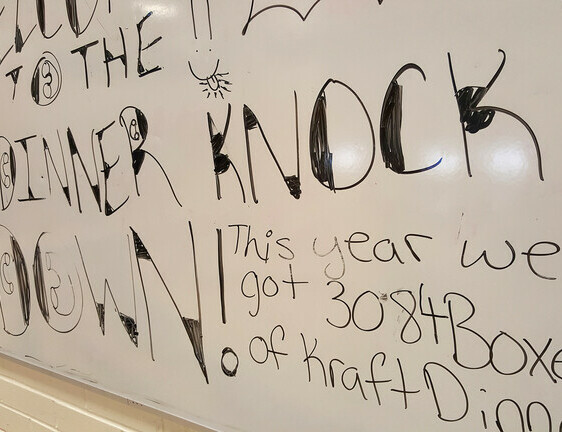 TO THE
DINNER KNOCK
DOWN!
This year we
got 3084 Boxe
of Kraft Dinn